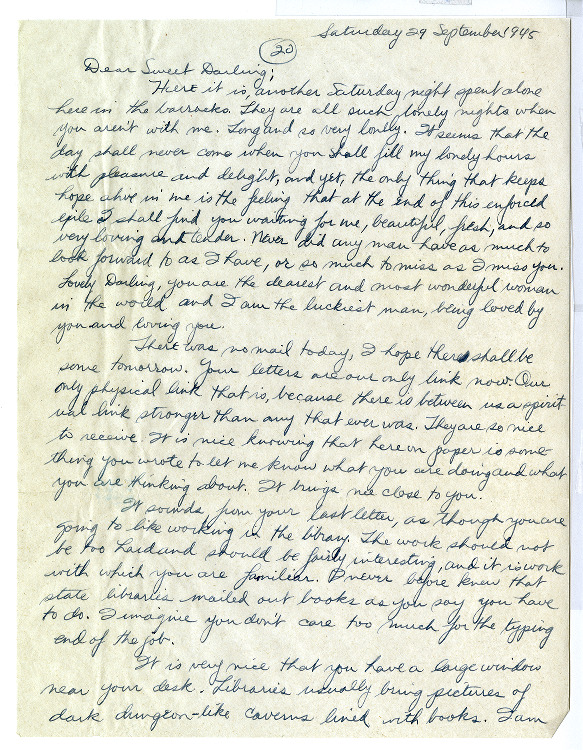 Saturday 29 September 1945
20
Dear Sweet Darling;
Here it is, another Saturday night spent alone
here in the barracks. They are all such lonely nights when
you aren't with me. Long and so very lonely. It seems that the
day shall never come when you shall fill my lonely hours
with pleasure and delight, and yet, the only thing that keeps
hope alive in me is the feeling that at the end of this enforced
exile I shall find you waiting for me, beautiful, fresh, and so
very loving and tender. Never did any man have as much to
look forward to as I have, or so much to miss as I miss you.
Lovely Darling, you are the dearest and most wonderful woman
in the world and I am the luckiest man, being loved by
you and loving you.
There was no mail today, I hope there shall be
some tomorrow. Your letters are our only link now. Our
only physical link that is, because there is between us a spirit-
ual link stronger than any that ever was. They are so nice
to receive. It is nice knowing that here on paper is some-
thing you wrote to let me know what you are doing and what
you are thinking about. It brings me close to you.
It sounds, from your last letter, as though you are
going to like working in the library. The work should not
be too hard and should be fairly interesting, and it is work
with which you are familiar. I never before knew that
state libraries mailed out books as you say you have
to do. I imagine you don't care too much for the typing
end of the job.
It is very nice that you have a large window
near your desk. Libraries usually bring pictures of
dark dungeon-like caverns lined with books. I am